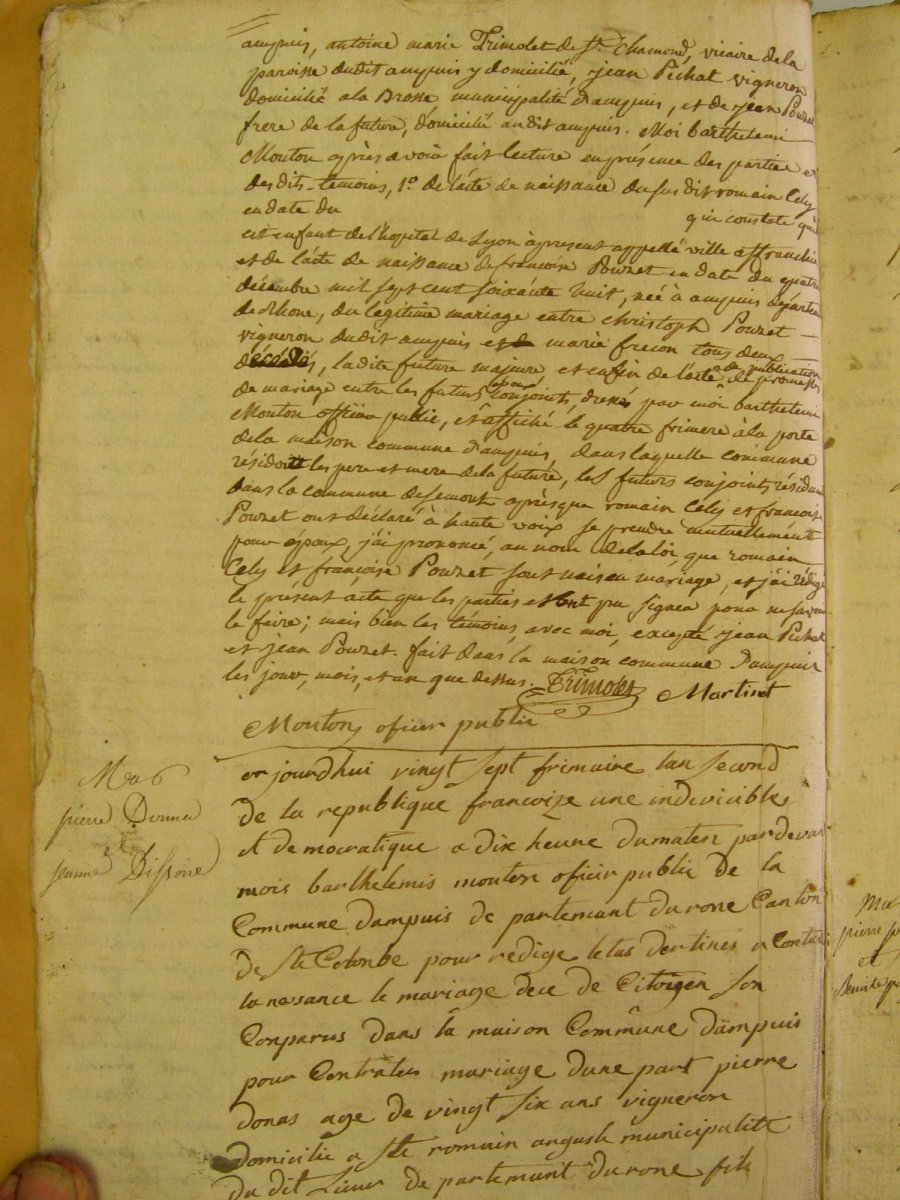 ampuis, antoine marie Trimolet de St. Chamond, vicaire de la
paroisse dudit ampuis y domicilié, jean Pichat vigneron
domicilié a la Brosse municipalité d'ampuis, et de jean Pouzet
frere de la future, domicilié audit ampuis. Moi barthelemi
Mouton après avoir fait lecture en présence des parties et
desdits témoins, 1o de l'acte de naissance du susdit romain Cely
en date du qui constate qu'il
est enfant de l'hopital de Lyon àpresent appellé ville affranchie
et de l'acte de naissance de francoise Pouzet en date du quatre
décembre mil sept cent soixante huit, née à ampuis départem
de Rhone, du legitime mariage entre christoph Pouzet
vigneron dudit ampuis et marie frecon tous deux
décédés, la dite future majeure et enfin de l'acte de publication de promesses
de mariage entre les futurs conjoints, dressé par moi barthelemi
Mouton officier public, et affiché le quatre frimere à la porte
de la maison commune d'ampuis, dans laquelle commune
résidoit les pere et mere de la future, les futurs conjoints résidant
dans la commune de Semont après que romain Cely et francoise
Pouzet ont déclaré à haute voix se prendre mutuellement
pour epoux, j'ai prononcé, au nom de la loi, que romain
Cely et françoise Pouzet sont unis en mariage, et j'ai rédigé
le présent acte que les parties n'ont pu signer pour ne savoir
le faire; mais bien les témoins avec moi, excepté jean Pichat
et jean Pouzet. fait dans la maison commune d'ampuis
les jour, mois, et an que dessus. Trimolet Martinot
Mouton oficier public
Mag
pierre Donna
et
jeanne Dissoire
orjourdhui vingt sept frimaire lan second
de la republique francoize une indivicible
et democratique a dix heure du maten pardevan
mois barthelemis mouton oficier public de la
Commune dampuis de partemant du rone Canton
de Ste Colombe pour redige letas dertines a Contate
la nessance le mariage dece de Citoyen son
Conparus dans la maison Commûne dampuis
pour Contrater mariage dune part pierre
donas age de vingt six ans vigneron
domicilié a Ste romain municipalite
du dit Lieux de partemant du rone fils
Ma
pierre
et